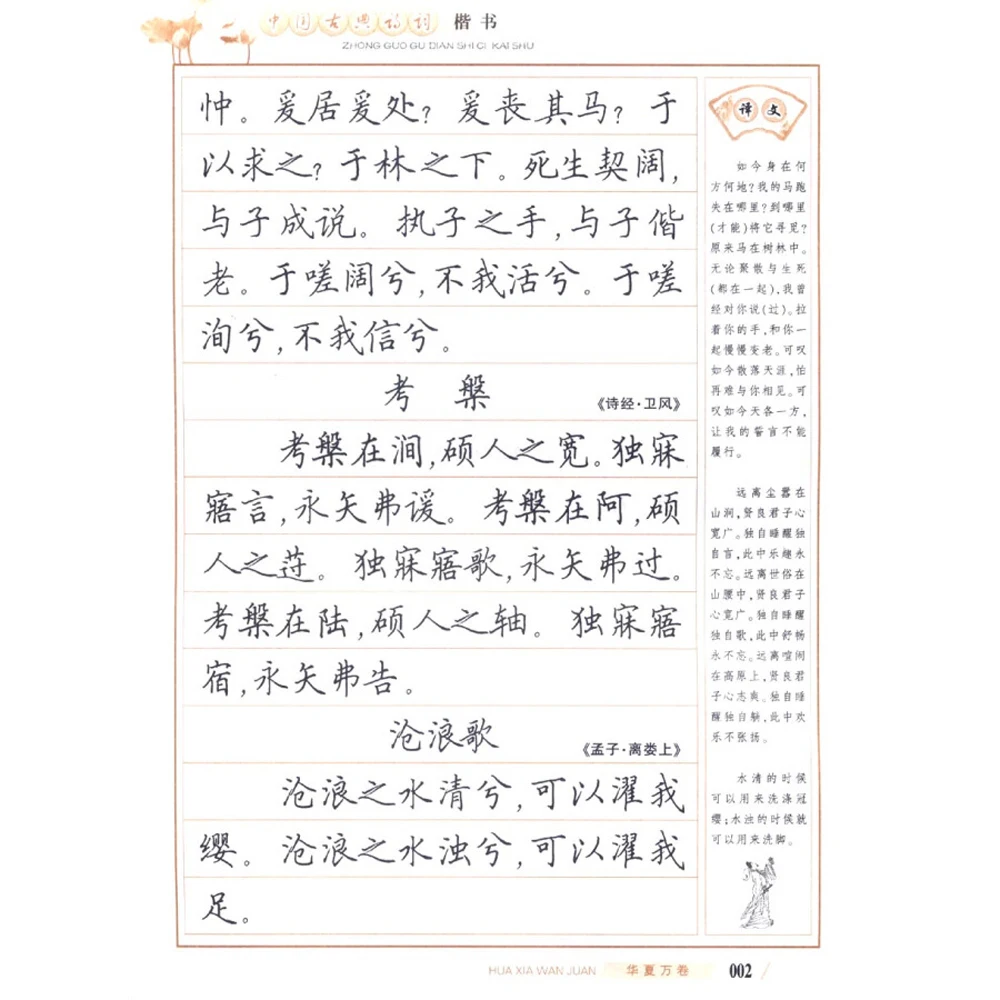 中国古典诗词 楷书
ZHONG GUO GU DIAN SHI CI KAI SHU
忡。爰居爰处?爰丧其马?于
以求之?于林之下。死生契阔,
与子成说。执子之手,与子偕
老。于嗟阔兮,不我活兮。于嗟
洵兮,不我信兮。
考槃
《诗经·卫风》
考槃在涧,硕人之宽。独寐
寤言,永矢弗谖。考槃在阿,硕
人之薖。独寐寤歌,永矢弗过。
考槃在陆,硕人之轴。独寐寤
宿,永矢弗告。
沧浪歌
《孟子·离娄上》
沧浪之水清兮,可以濯我
缨。沧浪之水浊兮,可以濯我
足。
译文
如今身在何
方何地?我的马跑
失在哪里?到哪里
(才能)将它寻见?
原来马在树林中。
无论聚散与生死
(都在一起),我曾
经对你说(过)。拉
着你的手,和你一
起慢慢变老。可叹
如今散落天涯,怕
再难与你相见。可
叹如今天各一方,
让我的誓言不能
履行。
远离尘嚣在
山涧,贤良君子心
宽广。独自睡醒独
自言,此中乐趣永
不忘。远离世俗在
山腰中,贤良君子
心宽广。独自睡醒
独自歌,此中舒畅
永不忘。远离喧闹
在高原上,贤良君
子心志爽。独自睡
醒独自躺,此中欢
乐不张扬。
水清的时候
可以用来洗涤冠
缨;水浊的时候就
可以用来洗脚。
HUA XIA WAN JUAN 华夏万卷 002